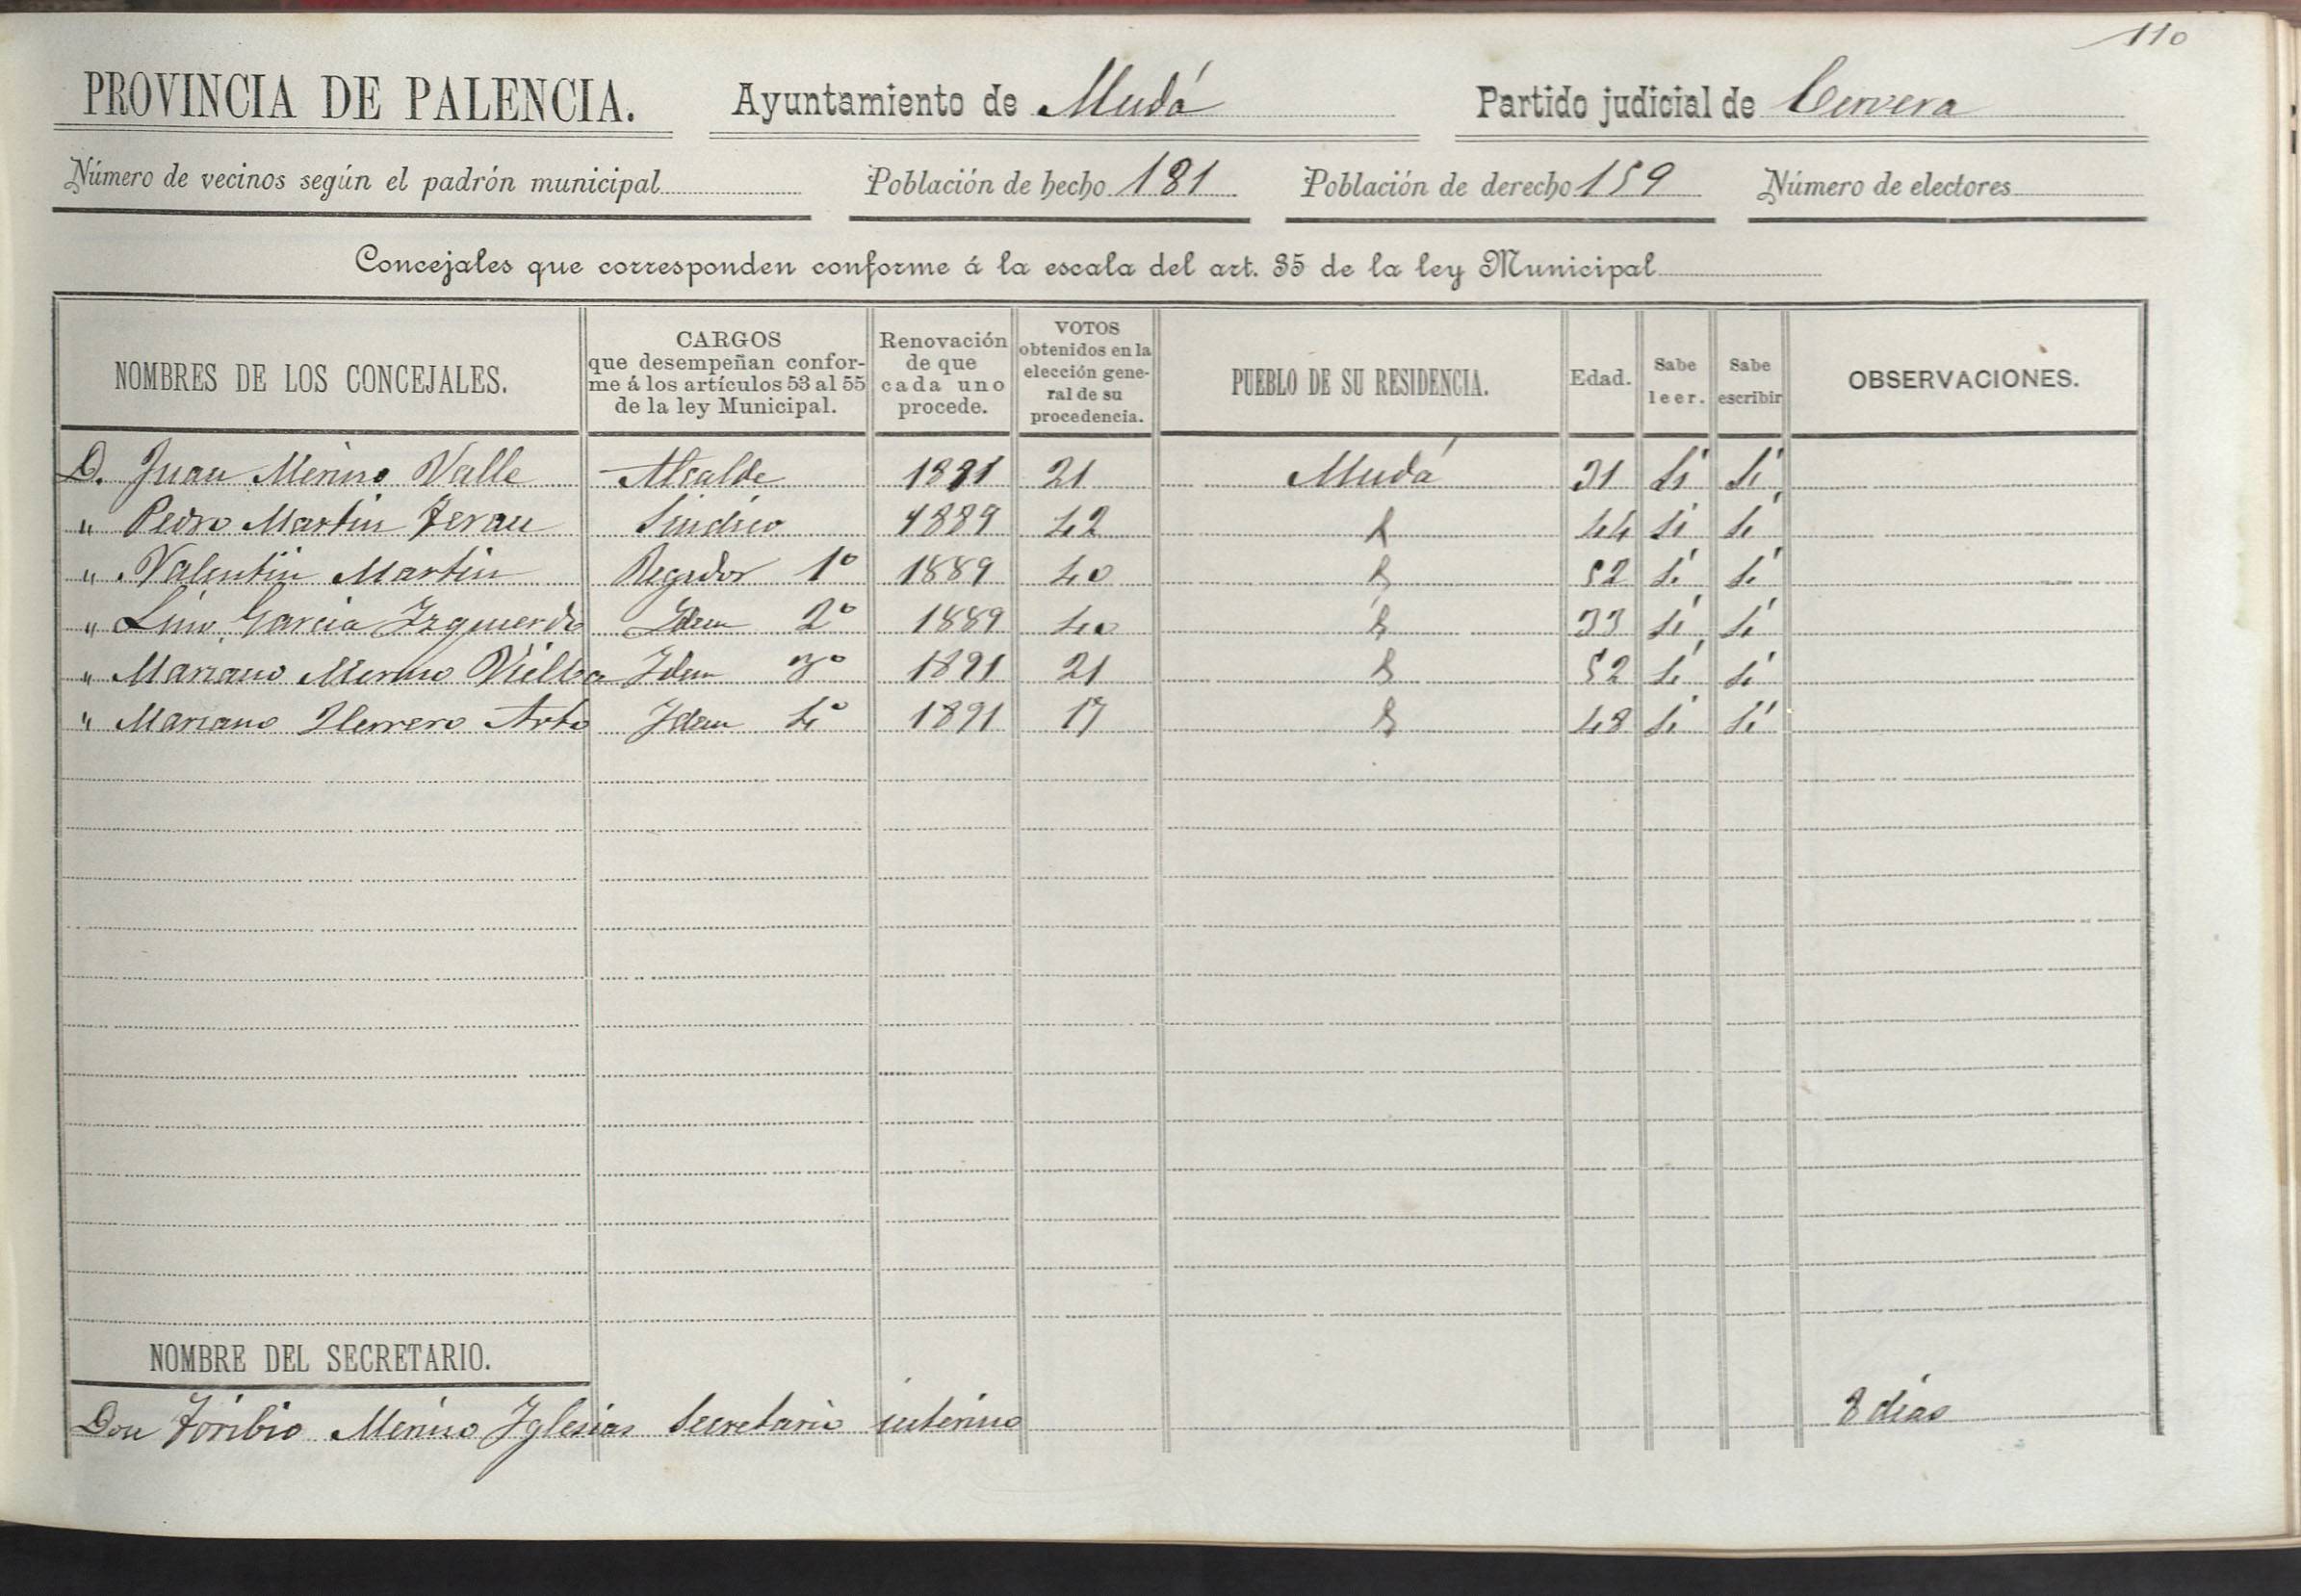 110
PROVINCIA DE PALENCIA. Ayuntamiento de Mudá Partido judicial de Cervera
Número de vecinos según el padrón municipal Población de hecho 181 Población de derecho 159 Número de electores
Concejales que corresponden conforme á la escala del art. 35 de la ley Municipal
NOMBRES DE LOS CONCEJALES. CARGOS que desempeñan confor- me á los artículos 53 al 55 de la ley Municipal. Renovación de que cada uno procede. VOTOS obtenidos en la elección gene- ral de su procedencia. PUEBLO DE SU RESIDENCIA. Edad. Sabe leer. Sabe escribir OBSERVACIONES.
D. Juan Merino Valle Alcalde 1891 21 Mudá 31 Si Si
" Pedro Martin Teran Sindico 1889 42 44 si si
" Valentin Martin Regidor 1º 1889 40 52 si si
" Lino Garcia Izquierdo Idem 2º 1889 40 33 si si
" Mariano Merino Vielba Idem 3º 1891 21 52 si si
" Mariano Herrero Arto Idem 4º 1891 17 48 si si
NOMBRE DEL SECRETARIO.
Don Toribio Merino Iglesias Secretario interino 8 dias